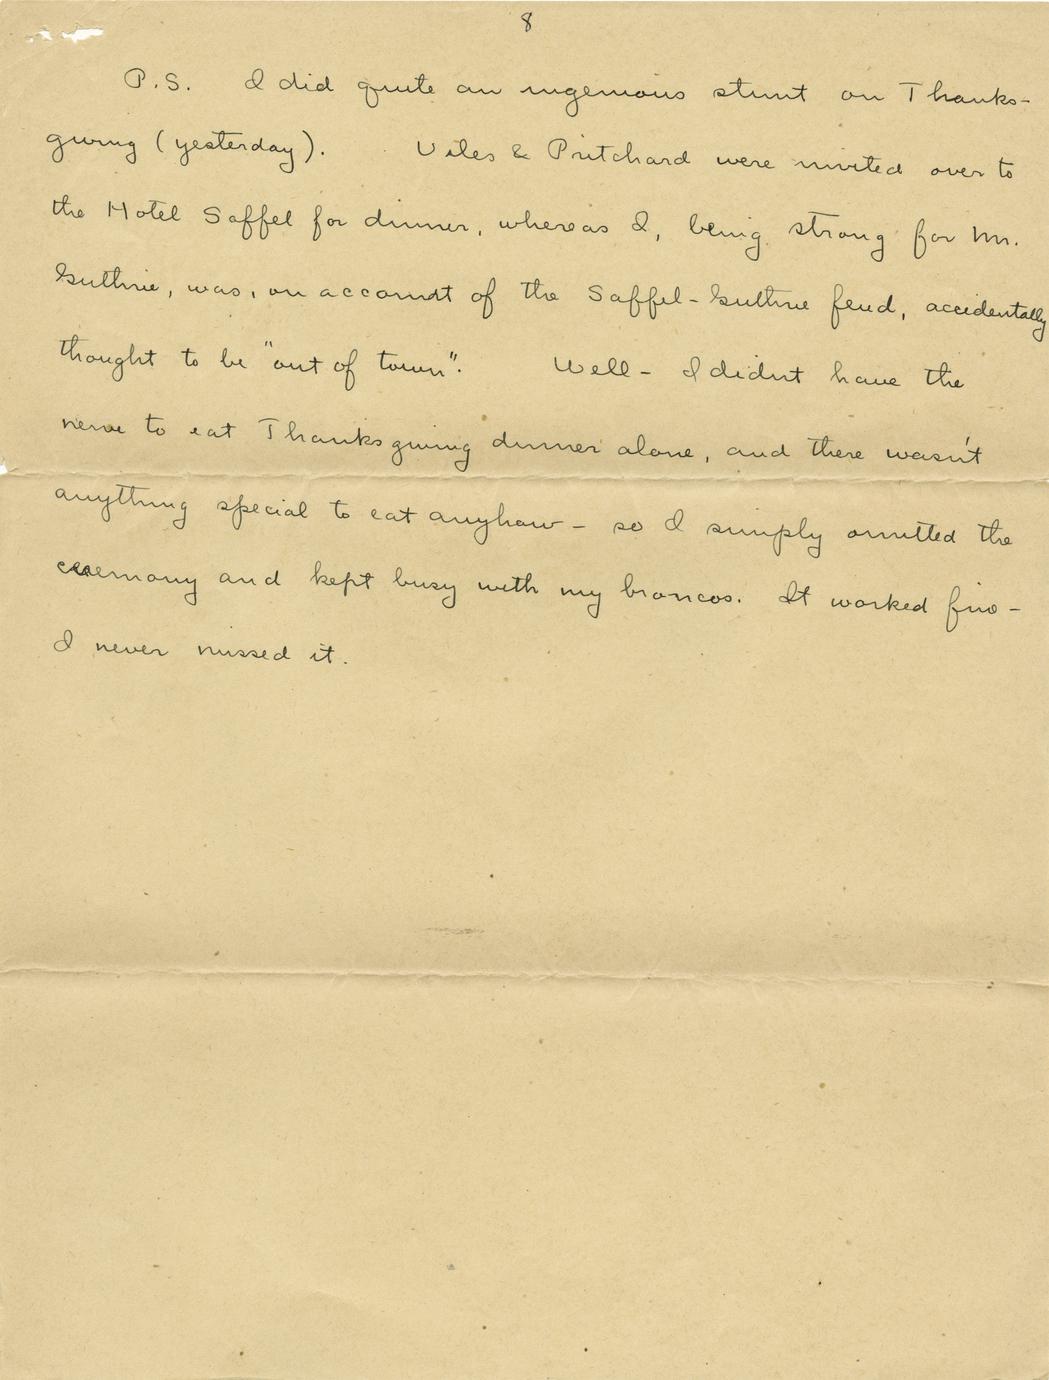 8
P.S. I did quite an ingenious stunt on Thanks-
giving (yesterday). Viles & Pritchard were invited over to
the Hotel Saffel for dinner, whereas I, being strong for Mr.
Guthrie, was, on account of the Saffel-Guthrie feud, accidentally
thought to be "out of town". Well - I didn't have the
nerve to eat Thanksgiving dinner alone, and there wasn't
anything special to eat anyhow - so I simply omitted the
ceremony and kept busy with my broncos. It worked fine -
I never missed it.